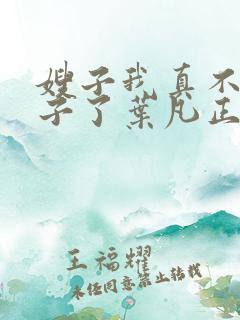 嫂子我真不
子了葉凡正
王福耀
未经同意禁止转载